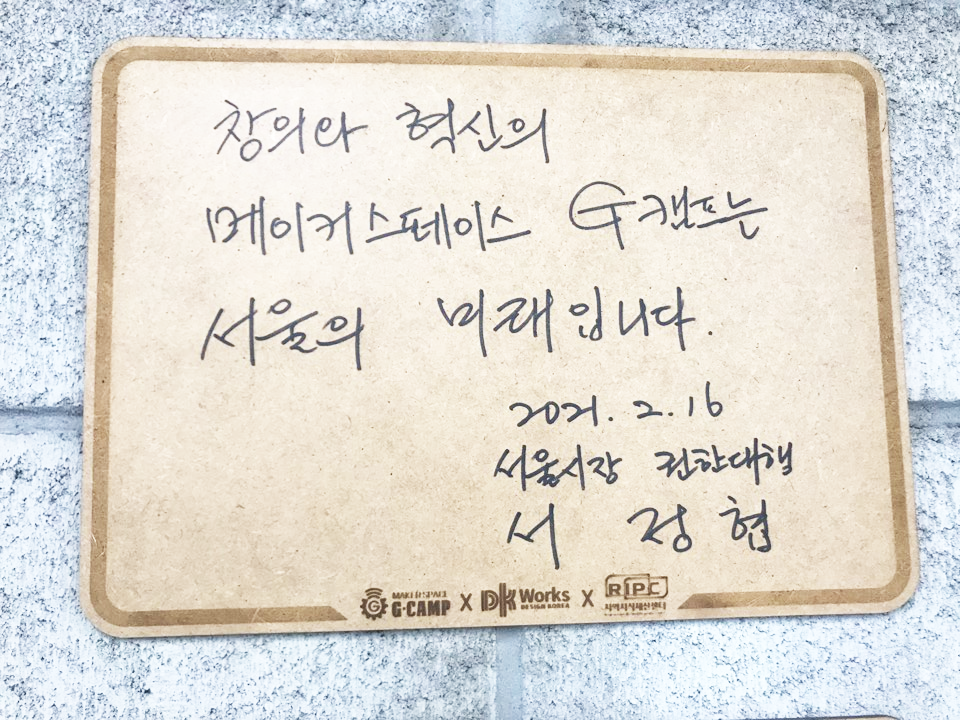 창의와 혁신의
메이커스페이스 G캠프는
서울의 미래입니다.
2021. 2. 16
서울시장 권한대행
서 정 협
MAKER SPACE
G·CAMP X DK Works X RIPC
DESIGN KOREA
지역지식재산센터